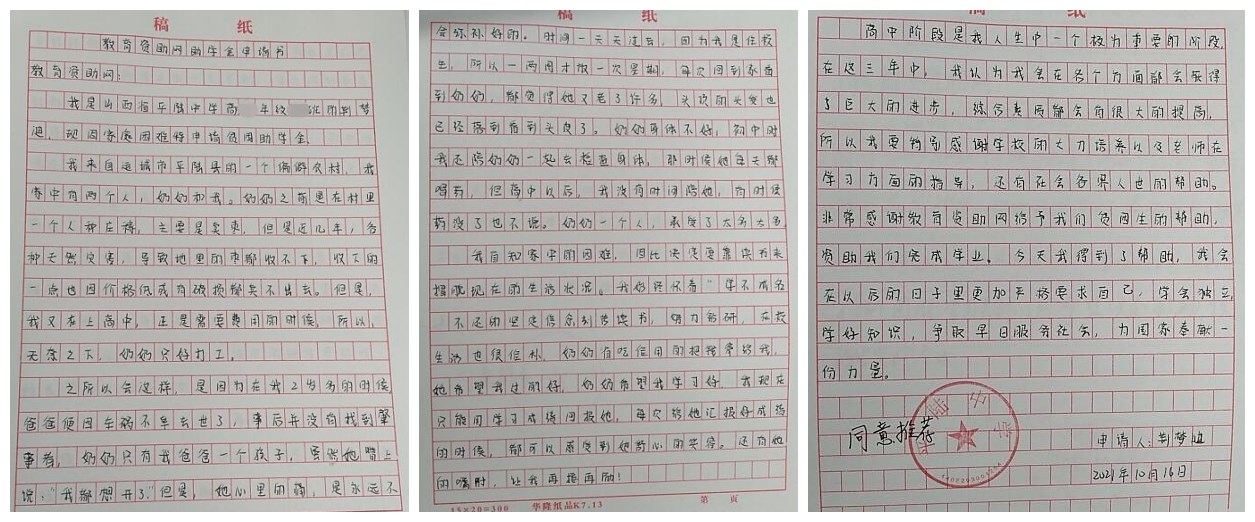 稿 纸
教育资助网助学金申请书
教育资助网:
我是山西省平陆中学高 年级 班的荆梦
迪，现因家庭困难特申请贫困助学金。
我来自运城市平陆县的一个偏僻农村，我
家中有两个人，奶奶和我。奶奶之前是在村里
一个人种庄稼，主要是卖枣，但是近几年，各
种天然灾害，导致地里的枣都收不下，收下的
一点也因价格低或有破损都卖不出去。但是，
我又在上高中，正是需要费用的时候，所以，
无奈之下，奶奶只好打工。
之所以会这样，是因为在我2岁多的时候
爸爸便因车祸不幸去世了，事后并没有找到肇
事者，奶奶只有我爸爸一个孩子，虽然她嘴上
说，"我都想开了"但是，她心里的痛，是永远不
稿 纸
会弥补好的。时间一天天过去，因为我是住校
生，所以一两周才放一次星期，每次回到家看
到奶奶，都觉得她又老了许多，头顶的头发也
已经落到看到头皮了。奶奶身体不好，初中时
我还陪奶奶一起去检查身体，那时候她每天都
喝药，但高中以后，我没有时间陪她，有时候
药没了也不语。奶奶一个人，承受了太多太多
我自知家中的困难，因此决定要靠读书来
摆脱现在的生活状况。我始终怀着"学不成名
不还的坚定信念刻苦读书，努力钻研，在校
生活也很俭朴，奶奶省吃俭用的把我带给我，
她希望我过的好，奶奶希望我学习好，我现在
只能用学习成绩回报她，每次给她汇报好成绩
的时候，都可以感受到她开心的笑容。还有她
的嘱咐，让我再接再励！
15×20=300 华隆纸品K7.13 第 页
稿 纸
高中阶段是我人生中一个极为重要的阶段，
在这三年中，我认为我会在各个方面都会获得
了巨大的进步，综合素质都会有很大的提高，
所以我要特别感谢学校的大力培养以及老师在
学习方面的指导，还有社会各界人士的帮助。
非常感谢教育资助网给予我们贫困生的帮助，
资助我们完成学业。今天我得到了帮助，我会
在以后的日子里更加严格要求自己，学会独立，
学好知识，争取早日服务社会，为国家奉献一
份力量。
同意推荐
申请人：荆梦迪
2021年10月16日